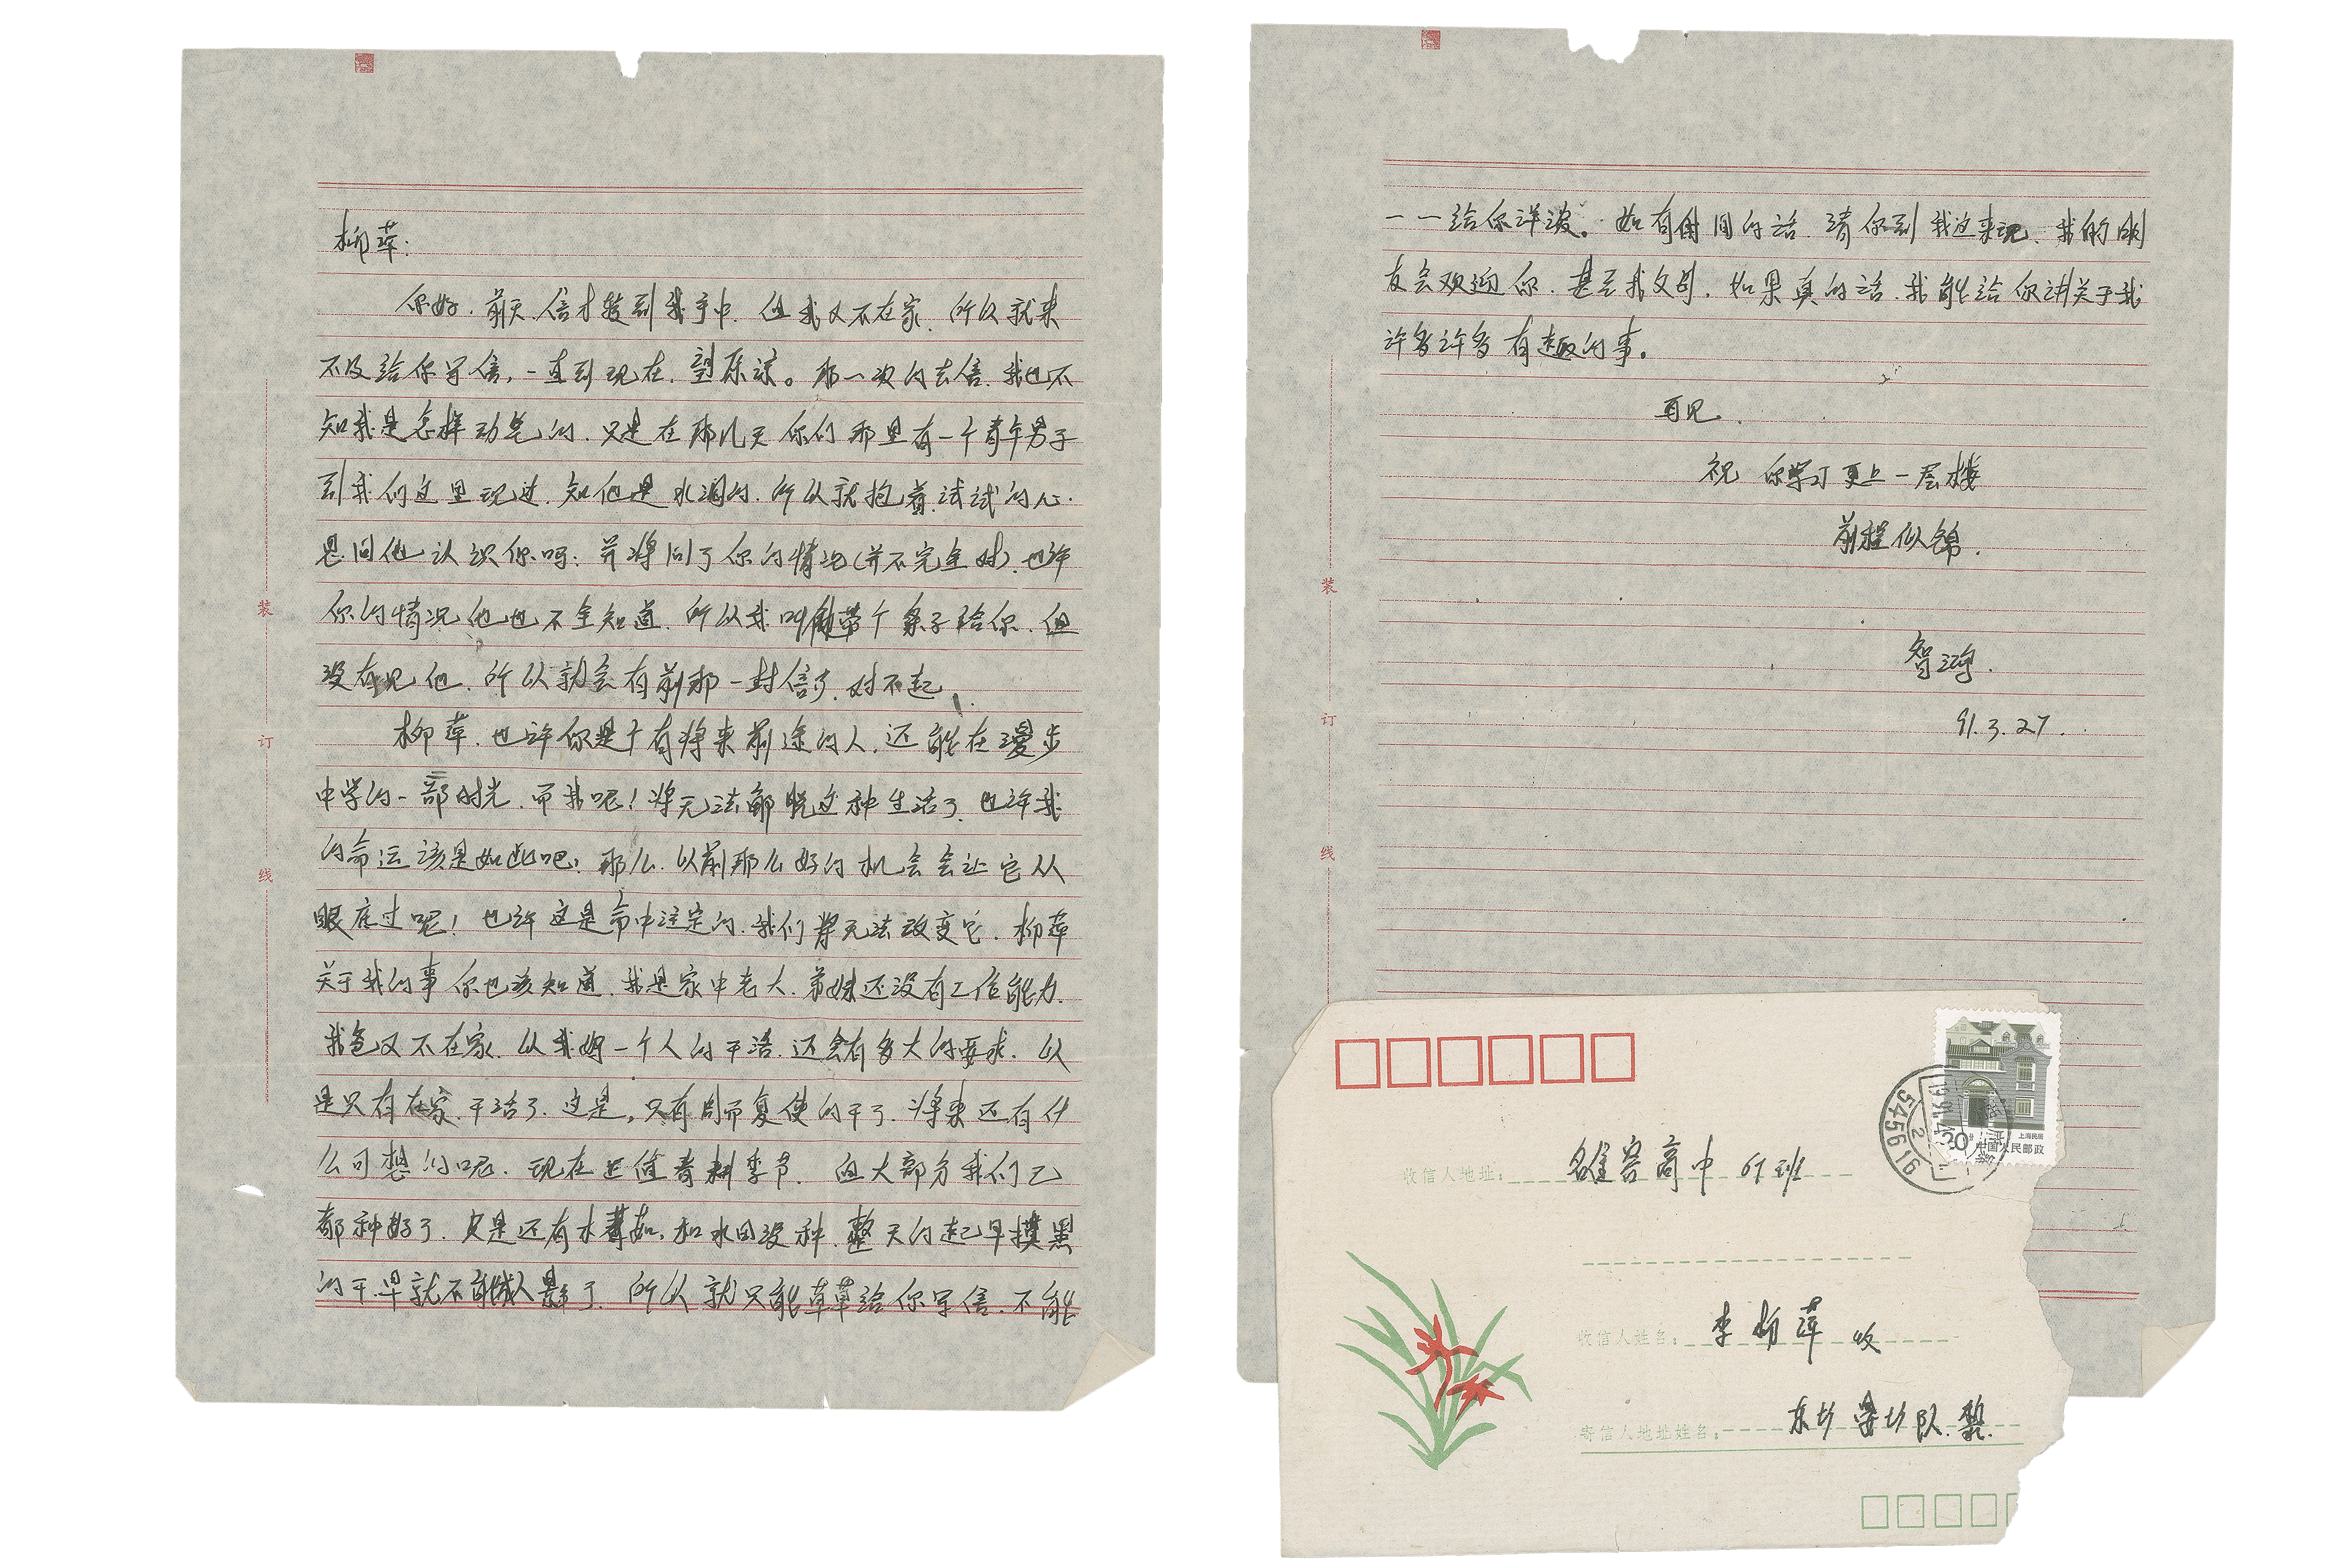 柳萍:
你好.前天.信才转到我手中.但我又不在家.所以就来
不及给你写信,一直到现在.望原谅。那一次的去信.我也不
知我是怎样动笔的.只是在那几天你们那里有一个青年男子
到我们这里玩过.知他是水洞的.所以就抱着试试的心.
思问他认识你吗:并将问了你的情况(并不完全对).也许
你的情况他也不全知道.所以我叫他带个条子给你.但
没有见他.所以就会有前那一封信了.对不起.
柳萍.也许你是个有将来前途的人.还能在漫步
中学的一部时光.而我呢!将无法解脱这种生活了.也许我
的命运该是如此吧!那么.以前那么好的机会会让它从
眼底过呢!也许这是命中注定的.我们将无法改变它.柳萍
关于我的事你也该知道.我是家中老大.弟妹还没有工作能力.
我爸又不在家.从我妈一个人的干活.还会有多大的要求.以
是只有在家.干活了.这是,只有周而复使的干了.将来还有什
么可想的呢.现在正值春耕季节.但大部分我们已
都种好了.只是还有水番茄.和水田没种.整天的起早摸黑
的干.早就不能成人影了.所以就只能草草给你写信.不能
一一给你详谈。如有时间的话.请你到我这来玩.我的朋
友会欢迎你.甚至我父母.如果真的话.我能给你讲关于我
许多许多有趣的事。
再见.
祝 你学习更上一层楼
前程似锦.
智鸿.
91.3.27.
装
订
线
装
订
线
收信人地址: 雒容高中 67班
收信人姓名: 李柳萍 收
寄信人地址姓名: 东圩 队.黎.
上海民居
20分
中国人民邮政
545616